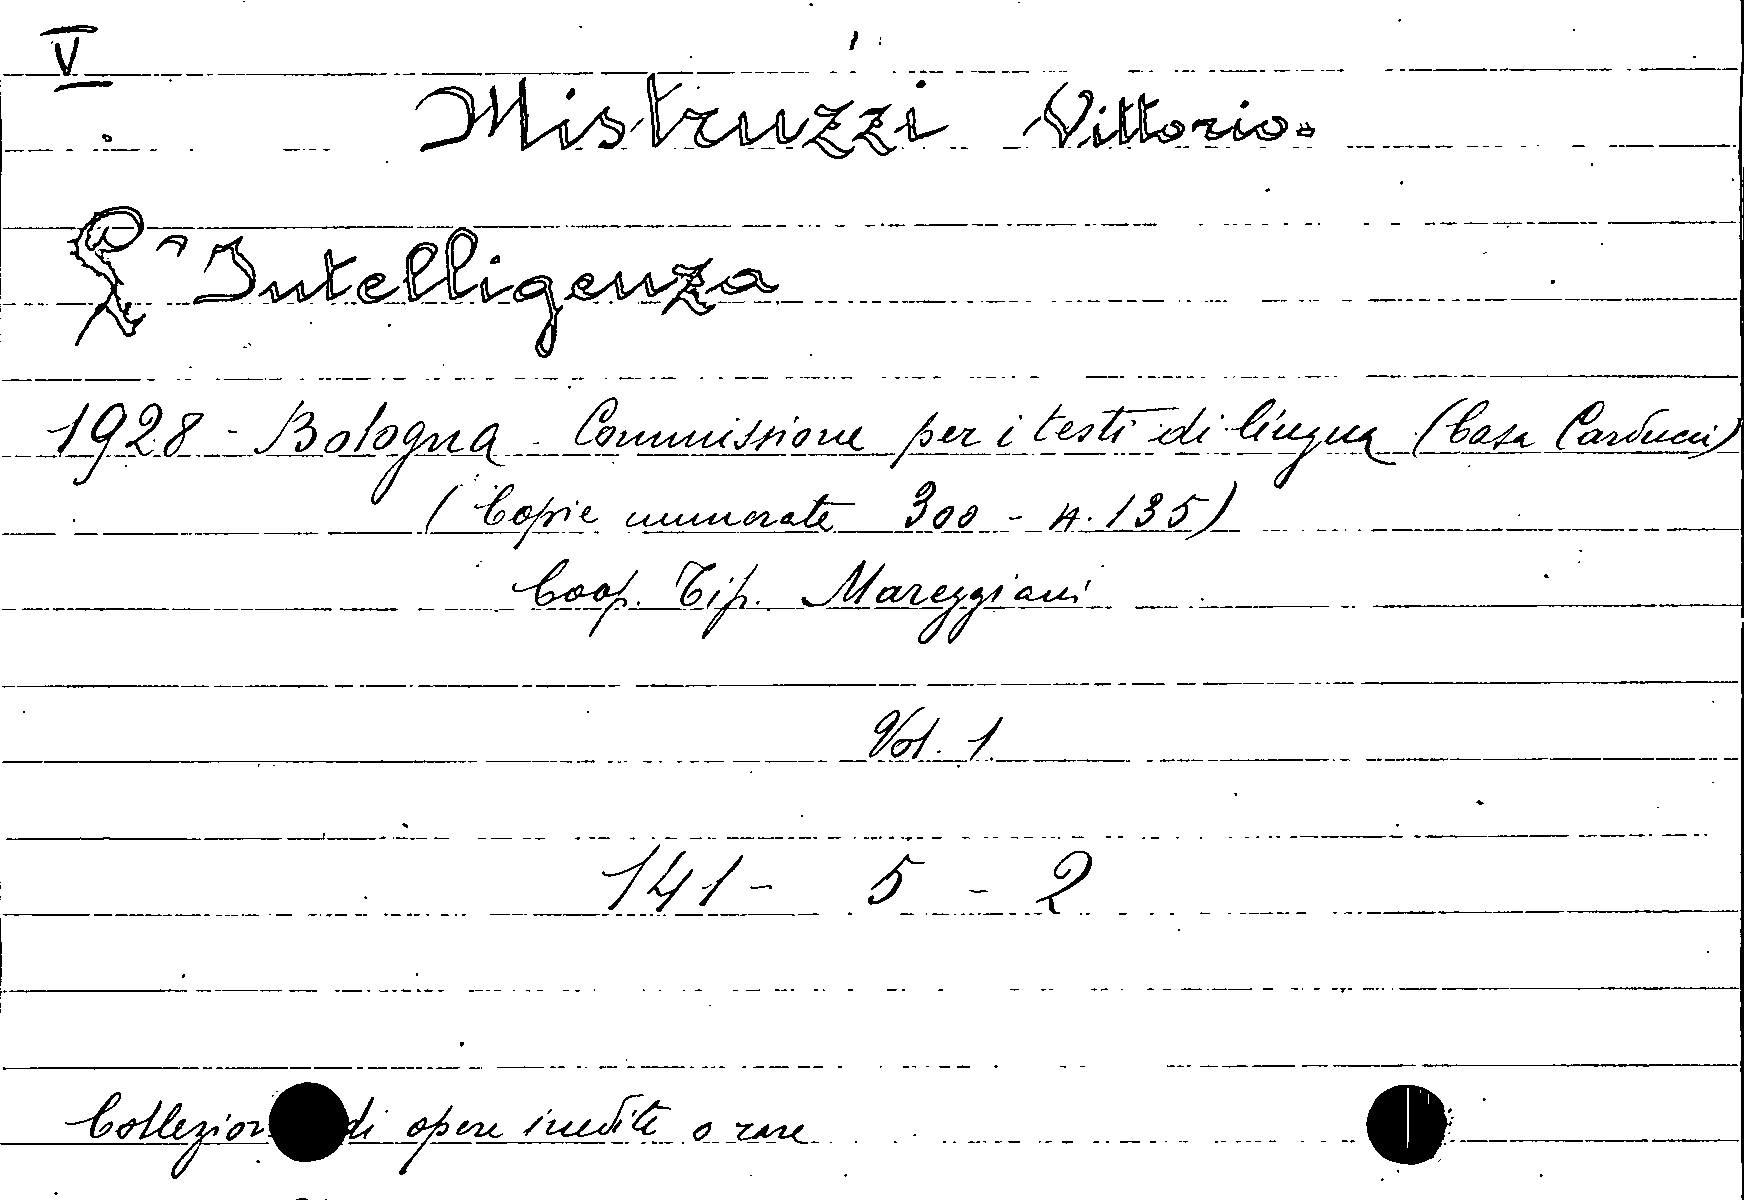 V
Mistruzzi Vittorio.
L'Intelligenza
1928 - Bologna - Commissione per i testi di lingua (Casa Carducci)
(Copie numerate 300 - n. 135)
Coop. Tip. Mareggiani
Vol. 1
141 - 5 - 2
Collezion di opere inedite o rare